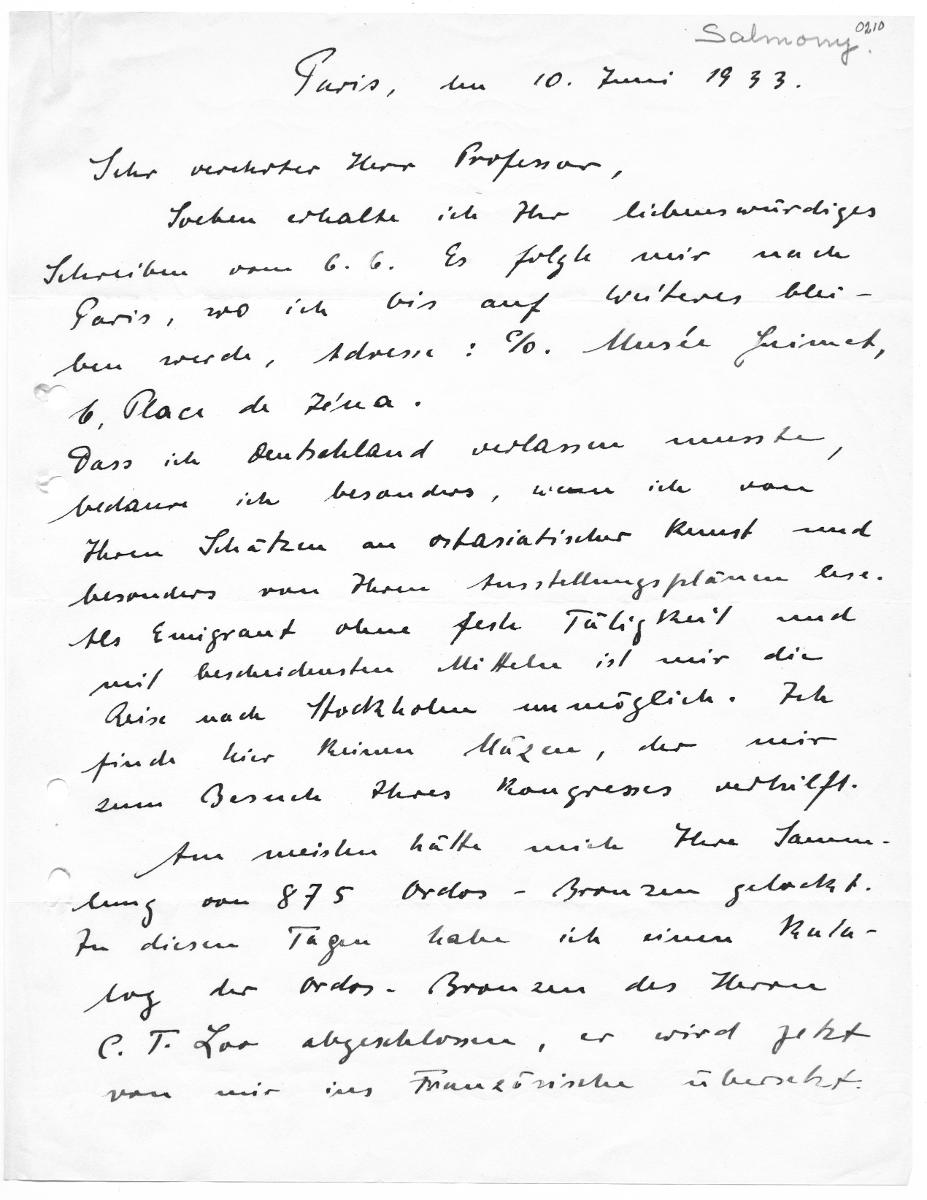 Salmony.
0210
Paris, den 10. Juni 1933.
Sehr verehrter Herr Professor,
Soeben erhalte ich Ihr liebenswürdiges
Schreiben vom 6. 6. Es folgte mir nach
Paris, wo ich bis auf Weiteres blei-
ben werde, Adresse: c/o. Musée Guimet,
6, Place de Jéna.
Dass ich Deutschland verlassen musste,
bedaure ich besonders, wenn ich von
Ihren Schätzen an ostasiatischer Kunst und
besonders von Ihren Ausstellungsplänen lese.
Als Emigrant ohne feste Tätigkeit und
mit bescheidensten Mitteln ist mir die
Reise nach Stockholm unmöglich. Ich
finde hier keinen Mäzen, der mir
zum Besuch Ihres Kongresses verhilft.
Am meisten hätte mich Ihre Samm-
lung von 875 Ordos-Bronzen gelockt.
In diesen Tagen habe ich einen Kata-
log der Ordos-Bronzen des Herrn
C. T. Loo abgeschlossen, er wird jetzt
von mir ins Französische übersetzt.